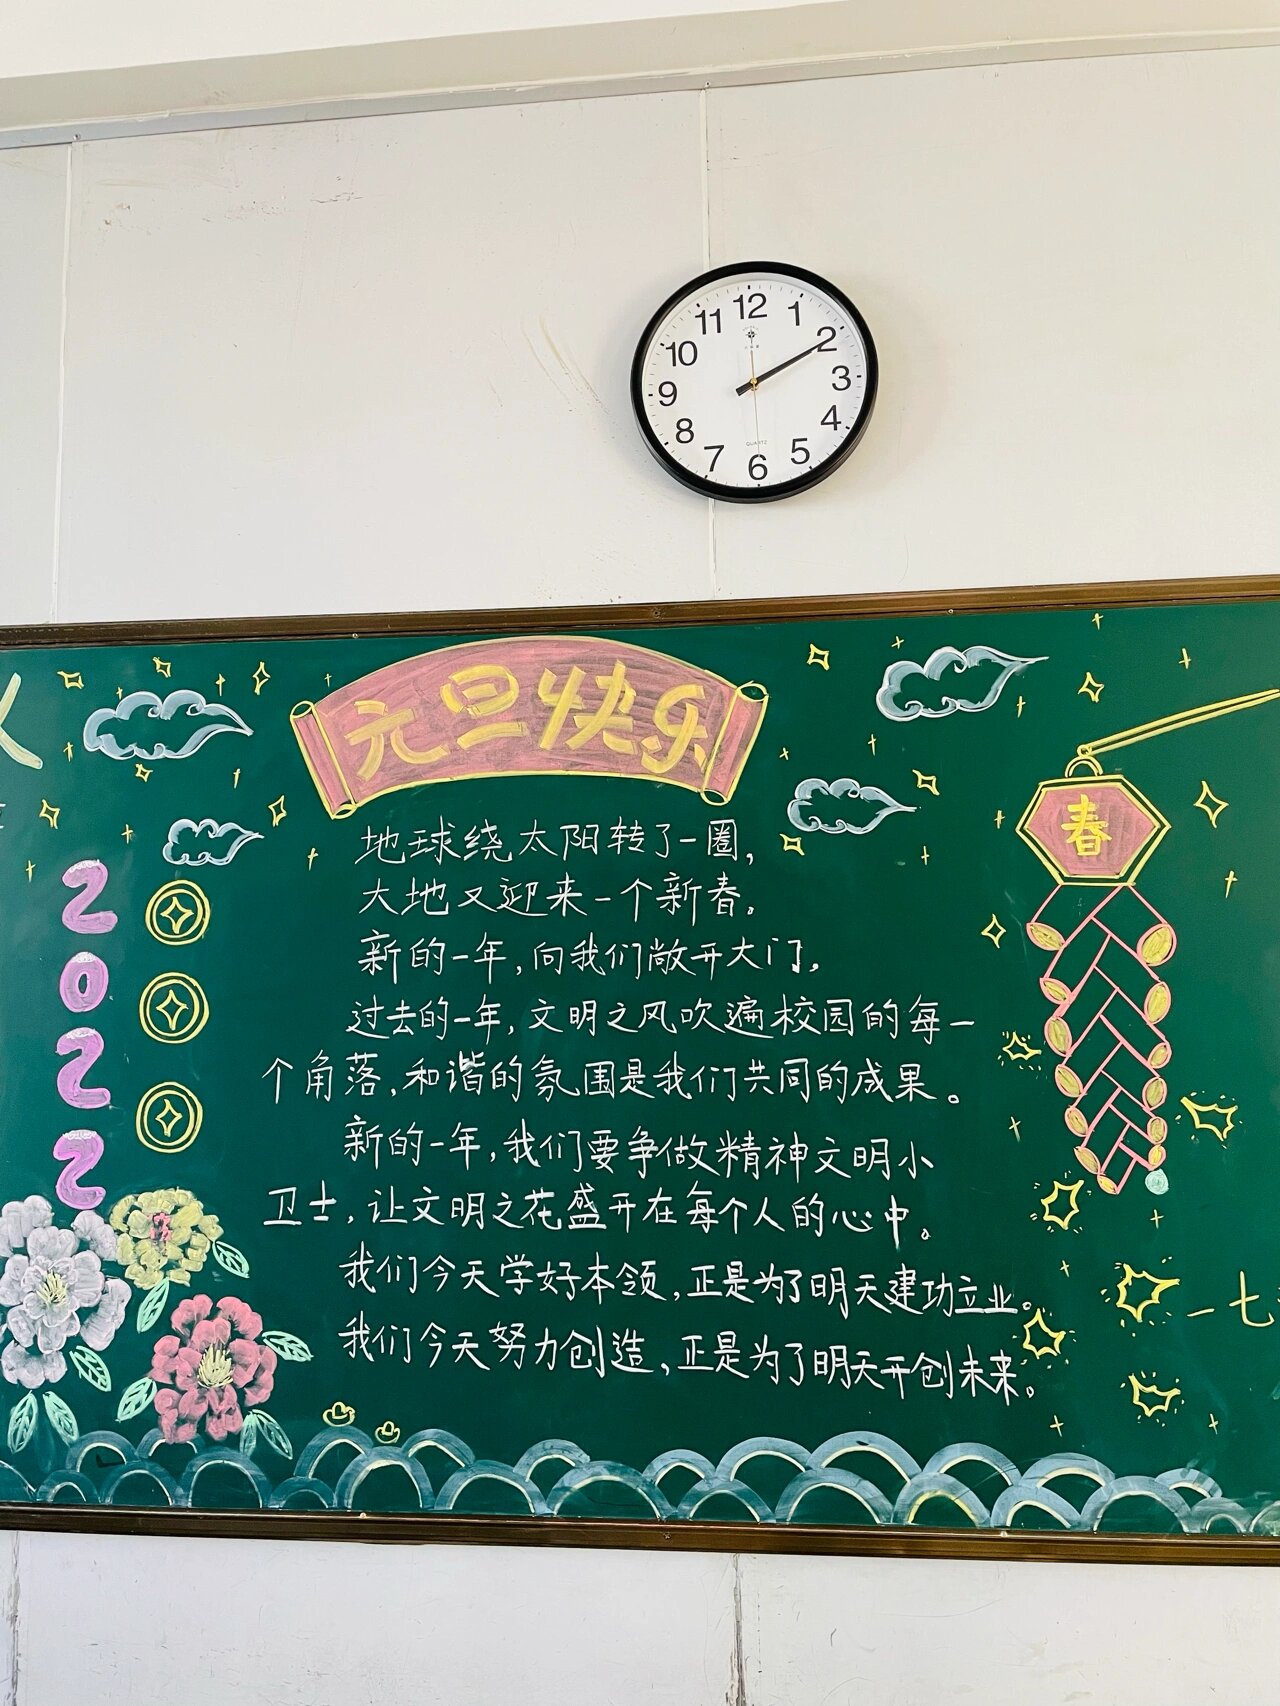 12
1
2
3
4
5
6
7
8
9
10
11
QUARTZ
元旦快乐
春
2022
地球绕太阳转了一圈，
大地又迎来一个新春。
新的一年，向我们敞开大门，
过去的一年，文明之风吹遍校园的每一
个角落，和谐的氛围是我们共同的成果。
新的一年，我们要争做精神文明小
卫士，让文明之花盛开在每个人的心中。
我们今天学好本领，正是为了明天建功立业。
我们今天努力创造，正是为了明天开创未来。
一七